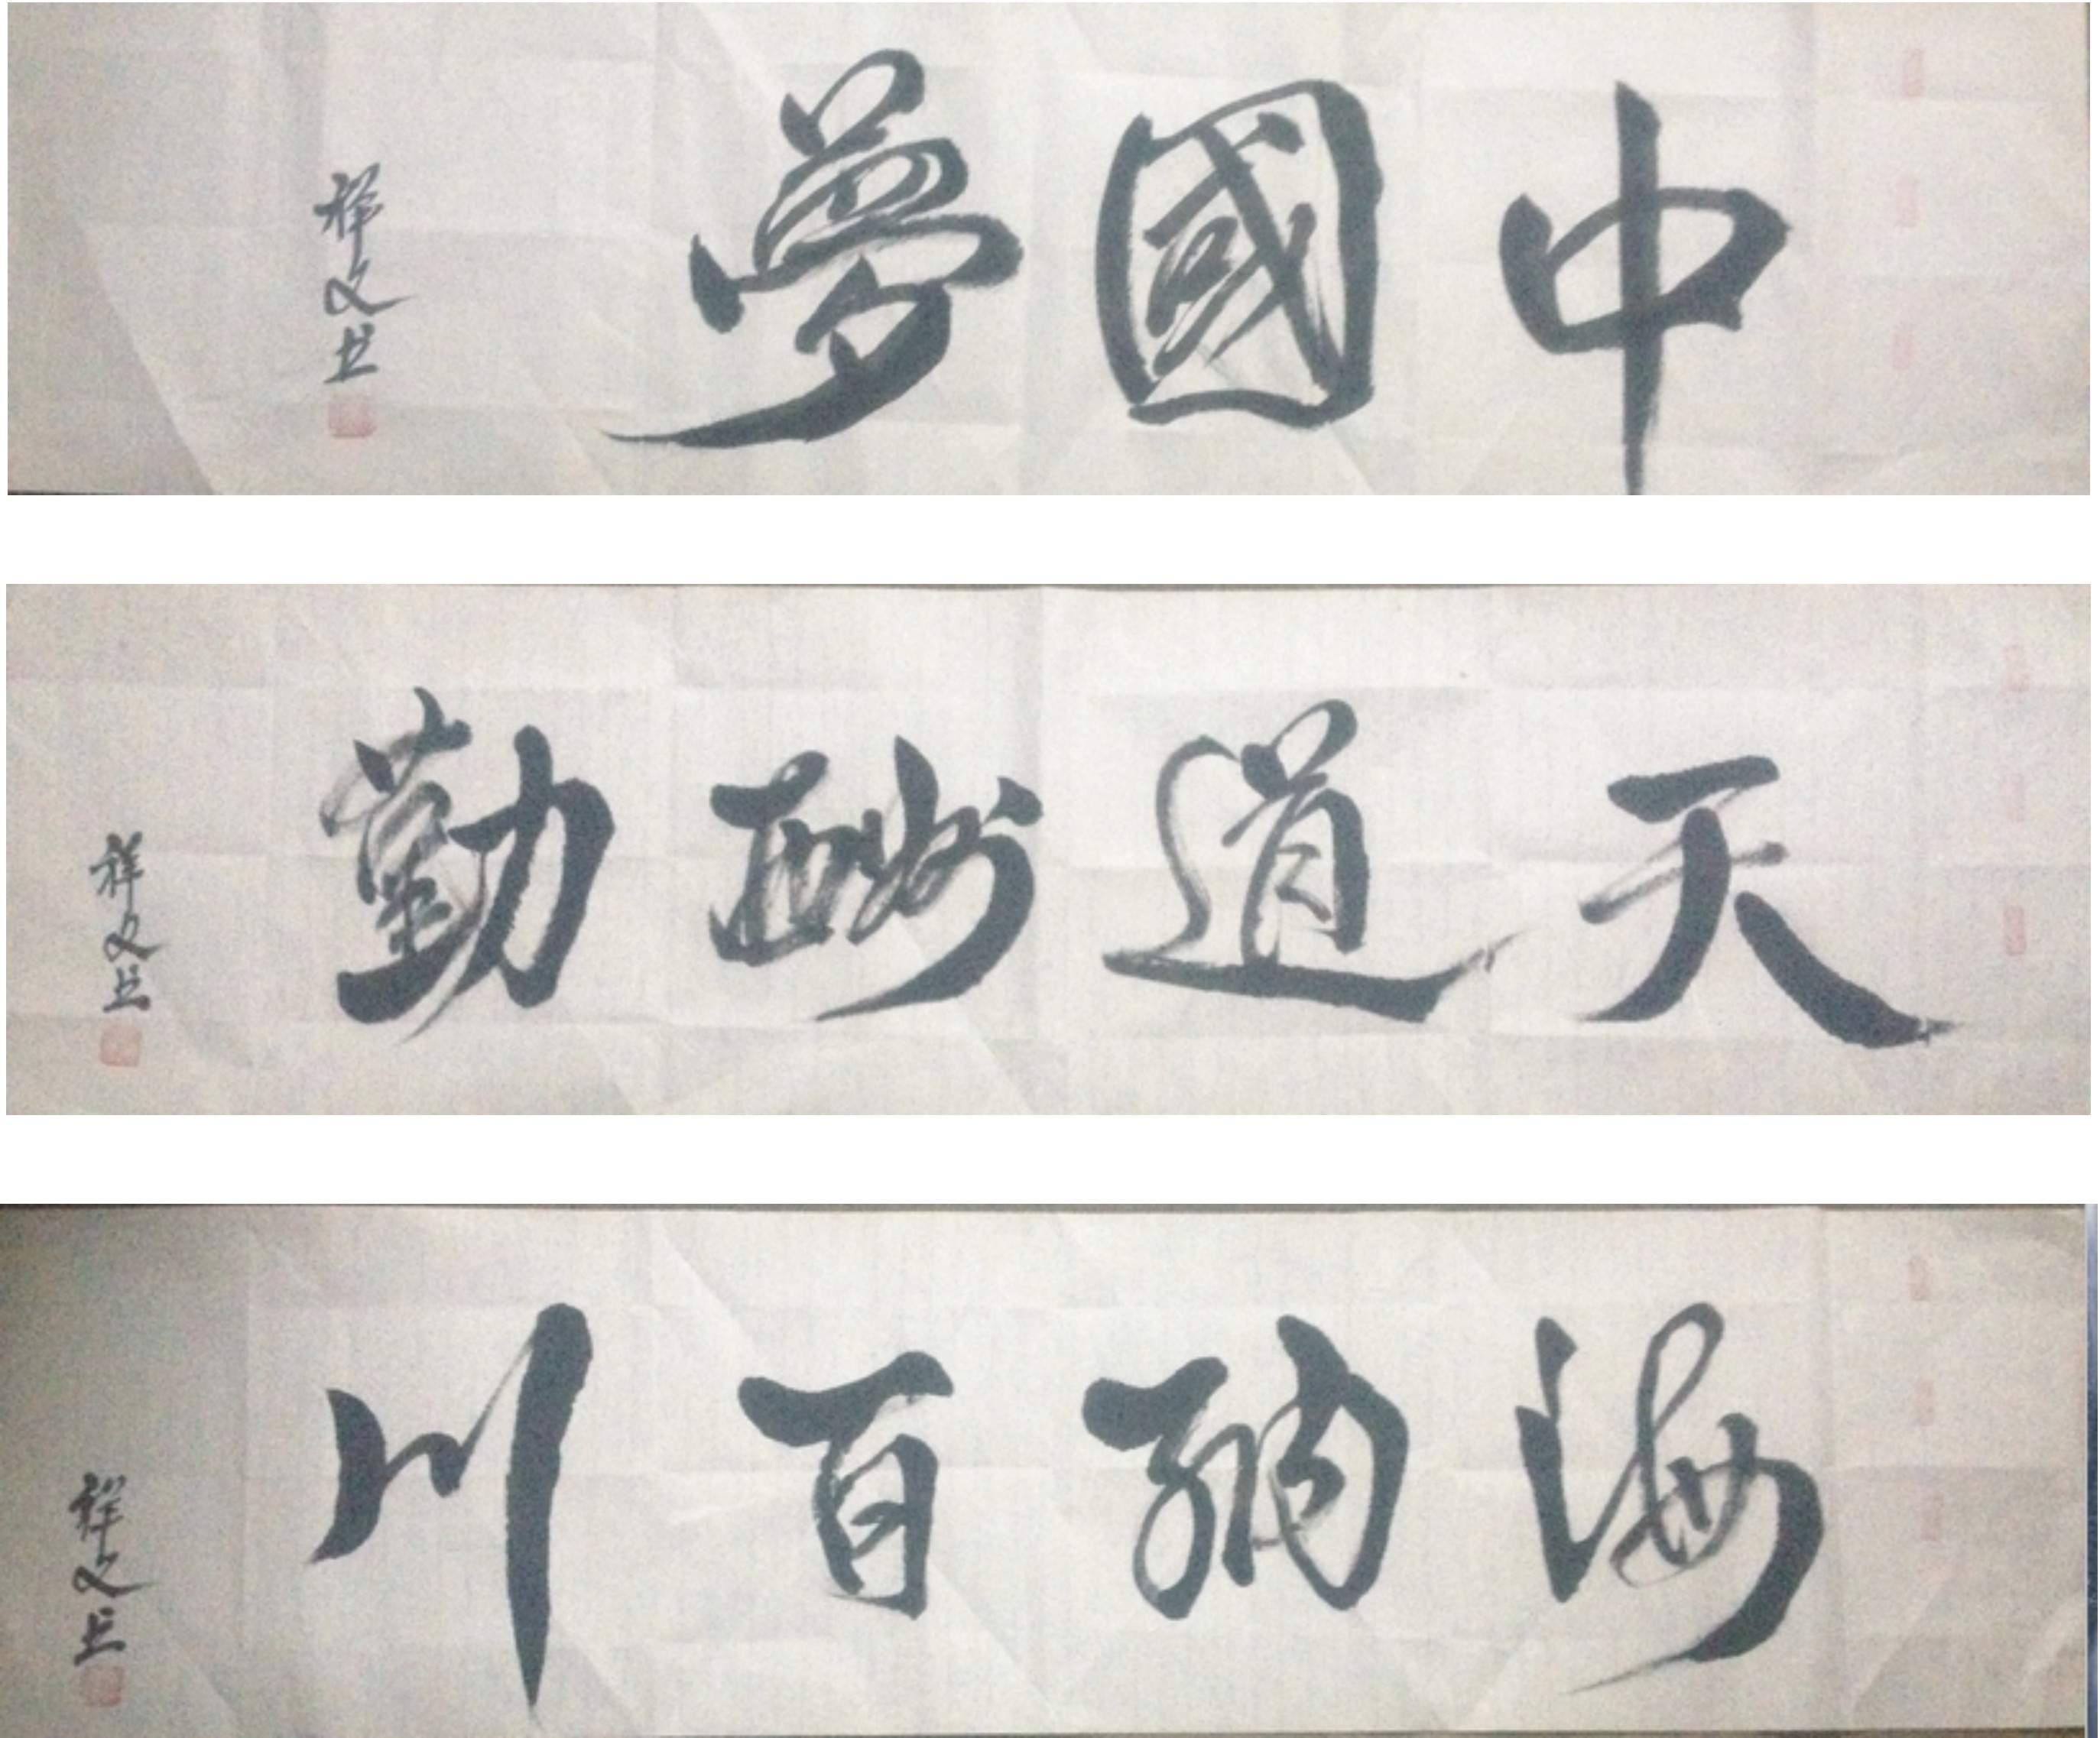 中國夢
祥文书
天道酬勤
祥文书
海納百川
祥文书